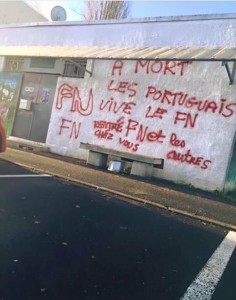 A MORT
LES PORTUGUAIS
FN VIVE LE FN
FN RENTRÉ FN et les
CHEZ VOUS autres